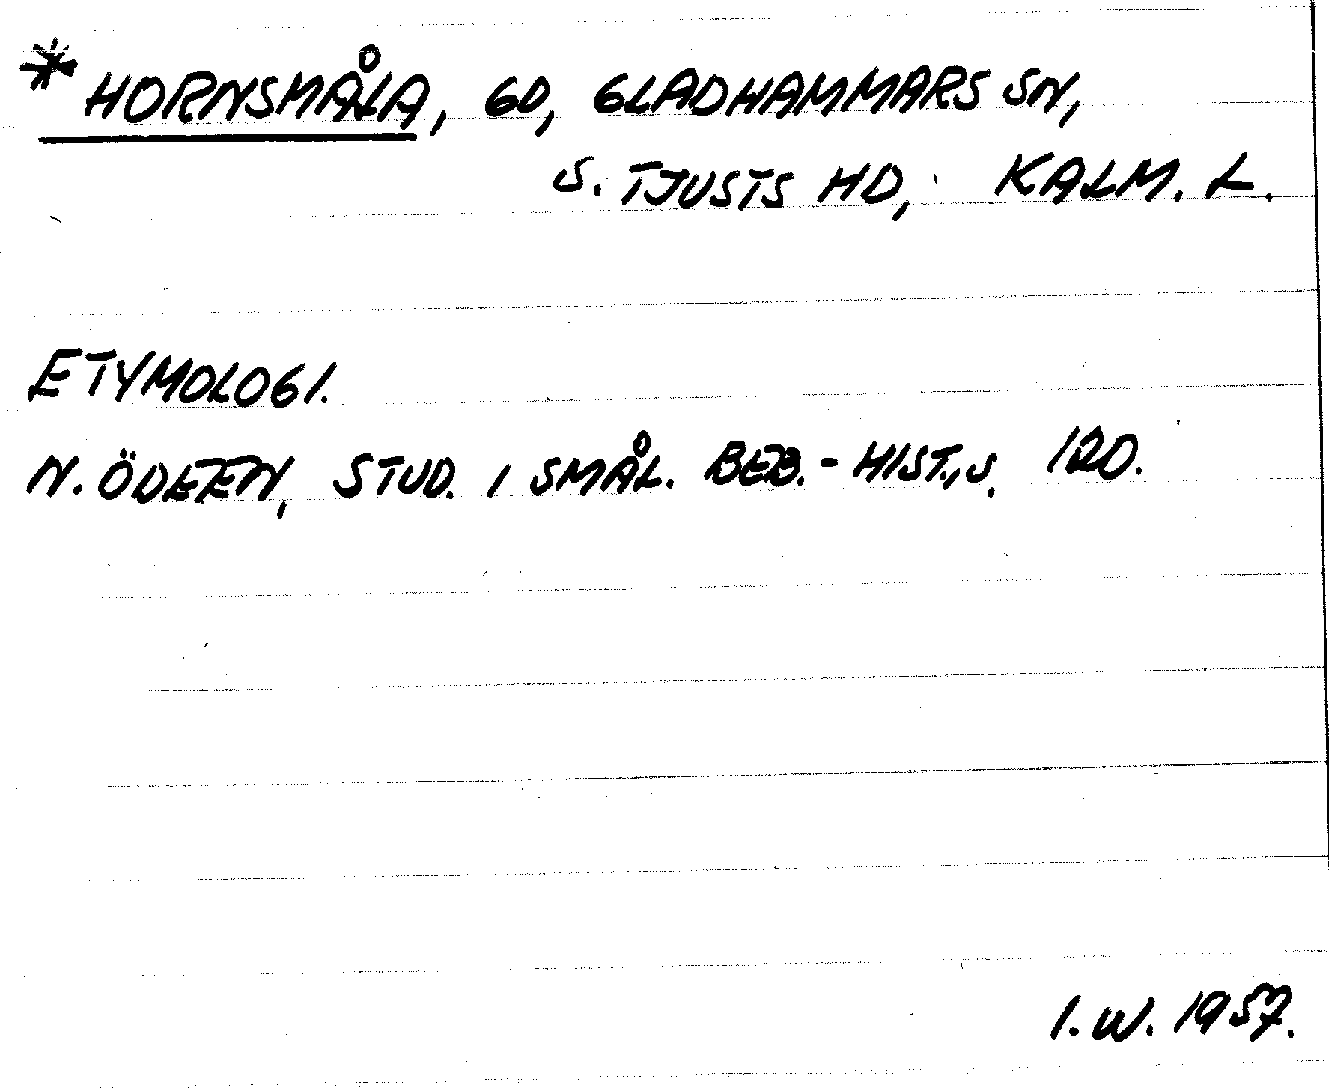 * HORNSMÅLA, GD, GLADHAMMARS SN,
S. TJUSTS HD, KALM. L.
ETYMOLOGI.
N. ÖDEEN, STUD. I SMÅL. BEB.-HIST., S. 120.
I. W. 1957.